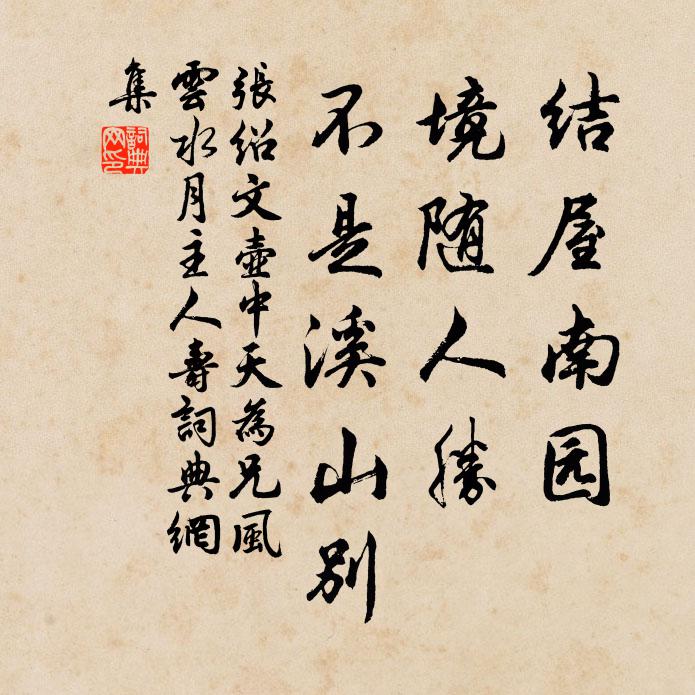 结屋南园
境随人胜
不是溪山别
張紹文壺中天為兄風
雲水月主人壽詞典網
集
詞典
网印